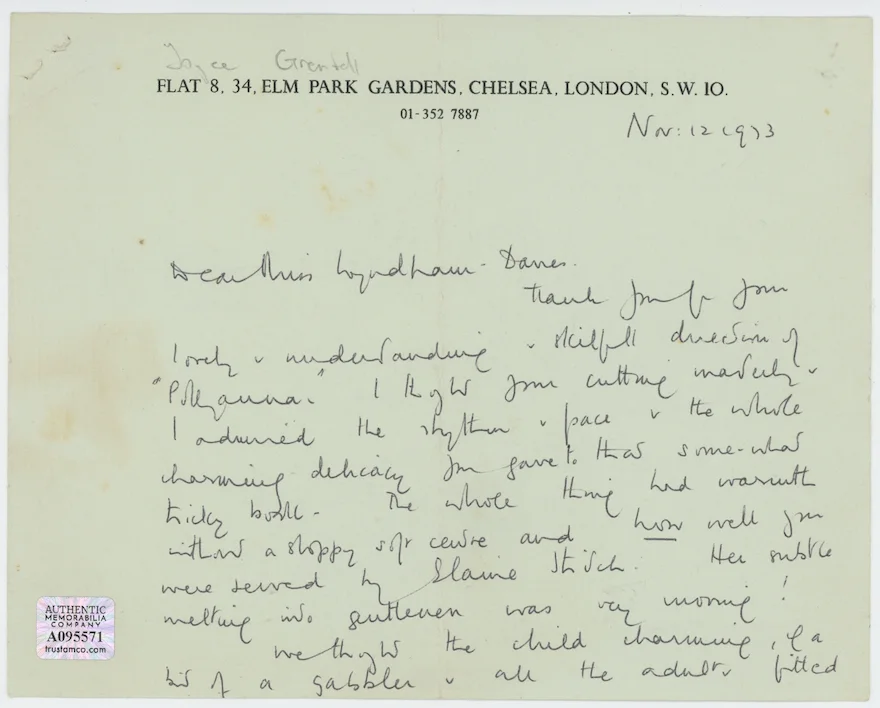 Joyce Grenfell
FLAT 8, 34, ELM PARK GARDENS, CHELSEA, LONDON, S.W. 10.
01-352 7887
Nov: 12 1973
Dear Miss Wyndham-Davies.
Thank you for your
lovely & understanding & skilful direction of
"Pollyanna." I thought your cutting masterly &
I admired the rhythm & pace & the whole
charming delicacy you gave to that some-what
tricky book. The whole thing had warmth
without a sloppy soft centre and how well you
were served by Elaine Stritch. Her subtle
melting into gentleness was very moving!
We thought the child charming, if a
bit of a gabbler & all the adults fitted
AUTHENTIC
MEMORABILIA
COMPANY
A095571
trustamco.com